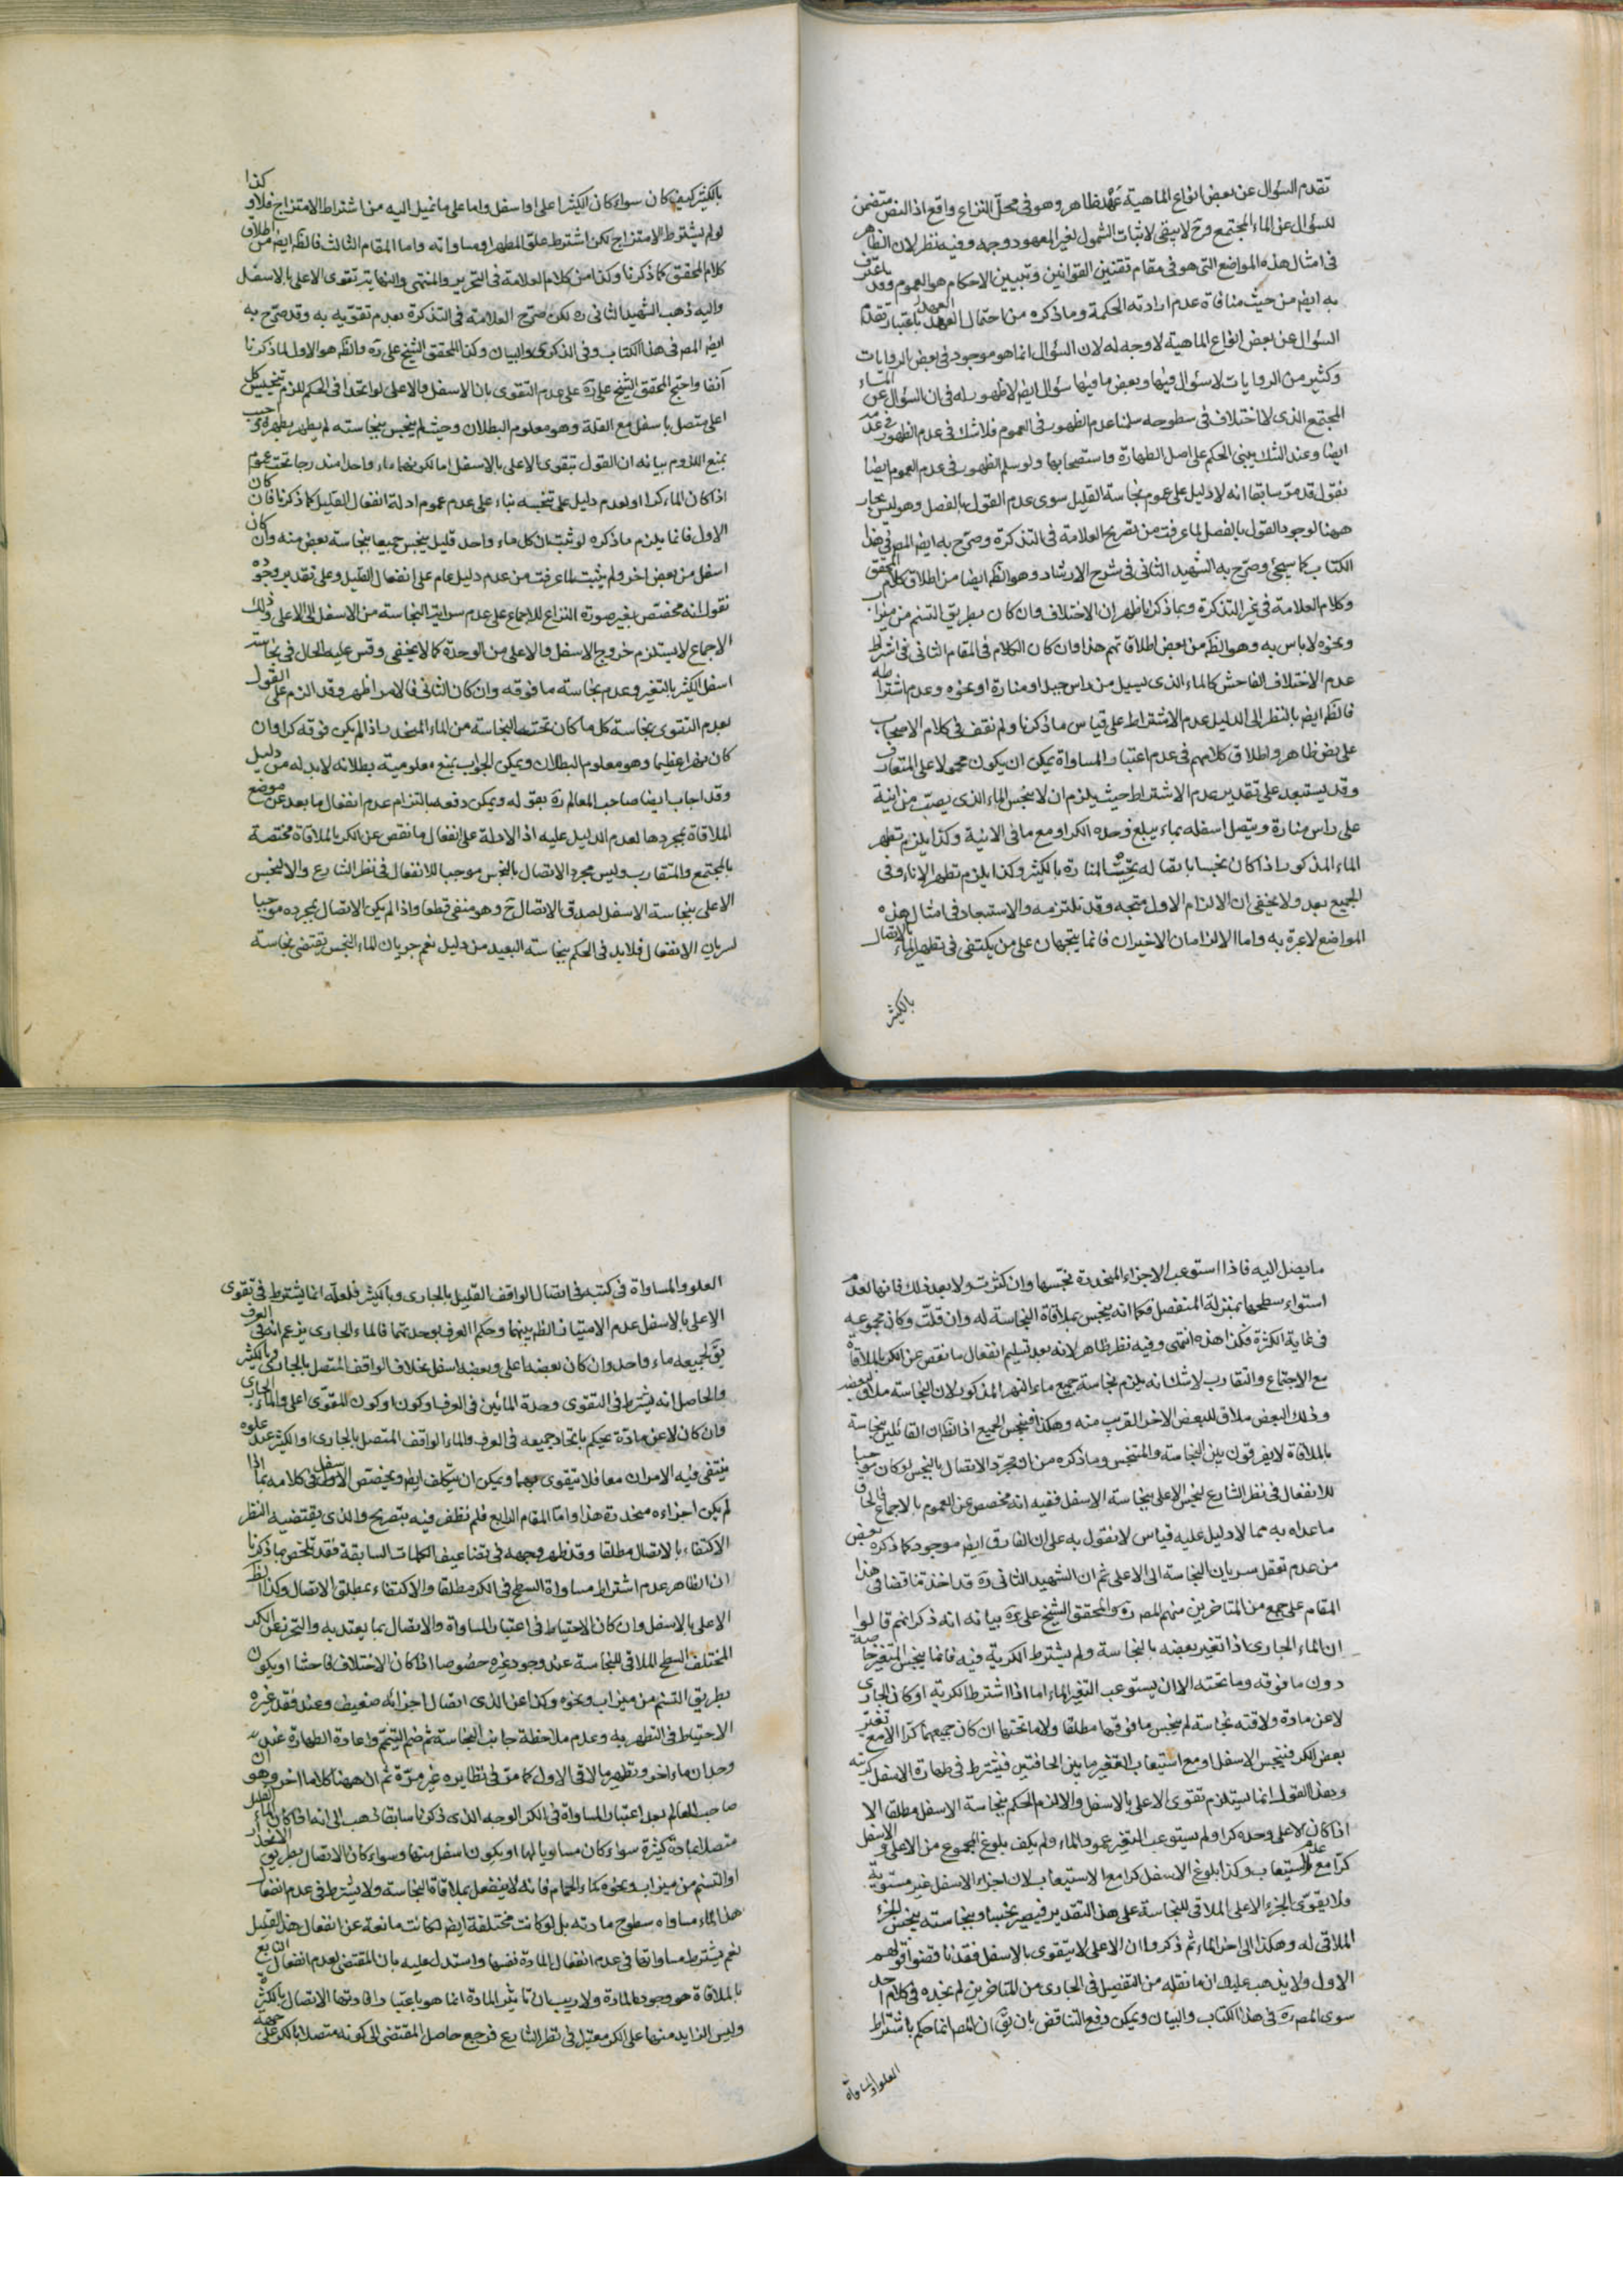 تقدم السؤال عن بعض انواع الماهية عهد ظاهر وهو فى محل النزاع واقع اذ النص متضمن
للسؤال عن الماء المجتمع وح لا يبقى لاثبات الشمول لغير المعهود وجه وفيه نظر لان الظاهر
فى امثال هذه المواضع التى هو فى مقام تقنين القوانين وتبيين الاحكام هو العموم وقد اعترف
به ايض من حيث منافاة عدم ارادته الحكمة وما ذكره من احتمال العهد باعتبار تقدم
السؤال عن بعض انواع الماهية لا وجه له لان السؤال انما هو موجود فى بعض الروايات
وكثير من الروايات لا سؤال فيها وبعض ما فيها سؤال ايض لا ظهور له فى ان السؤال عن الماء
المجتمع الذى لا اختلاف فى سطوحه سلمنا عدم الظهور فى العموم فلا شك فى عدم الظهور فى عدمه
ايضا وعند الشك يبنى الحكم على اصل الطهارة واستصحابها ولو سلم الظهور فى عدم العموم ايضا
نقول قد مر سابقا انه لا دليل على عموم نجاسة القليل سوى عدم القول بالفصل وهو ليس بجار
ههنا لوجود القول بالفصل لما عرفت من تصريح العلامة فى التذكرة وصرح به ايض المص فى هذا
الكتاب كما سيجئ وصرح به الشهيد الثانى فى شرح الارشاد وهو الظ ايضا من اطلاق كلام المحقق
وكلام العلامة فى غير التذكرة وبما ذكرنا ظهر ان الاختلاف وان كان بطريق التسنم من ميزاب
ونحوه لا باس به وهو الظ من بعض اطلاقاتهم هذا وان كان الكلام فى المقام الثانى فى اشتراط
عدم الاختلاف الفاحش كالماء الذى يسيل من راس جبل او منارة او نحوه وعدم اشتراطه
فالظ ايض بالنظر الى الدليل عدم الاشتراط على قياس ما ذكرنا ولم نقف فى كلام الاصحاب
على نص ظاهر واطلاق كلامهم فى عدم اعتبار المساواة يمكن ان يكون محمولا على المتعارف
وقد يستبعد على تقدير عدم الاشتراط حيث يلزم ان لا ينجس الماء الذى يصب من انية
على راس منارة ويتصل اسفله بماء يبلغ وحده الكر او مع ما فى الانية وكذا يلزم تطهر
الماء المذكور اذا كان نجسا باتصاله تحت المنارة بالكثير وكذا يلزم تطهر الاناء وفى
الجميع بعد ولا يخفى ان الالزام الاول متجه وقد نلتزمه والاستبعاد فى امثال هذه
المواضع لا عبرة به واما الالزامان الاخيران فانما يتجهان على من يكتفى فى تطهير الماء بالاتصال
بالكثير
بالكثير كيف كان سواء كان الكثير اعلى او اسفل واما على ما نميل اليه من اشتراط الامتزاج فلا وكذا
لو لم يشترط الامتزاج لكن اشترط علو المطهر او مساواته واما المقام الثالث فالظ ايض من اطلاق
كلام المحقق كما ذكرنا وكذا من كلام العلامة فى التحرير والمنتهى والنهاية تقوى الاعلى بالاسفل
واليه ذهب الشهيد الثانى ره لكن صرح العلامة فى التذكرة بعدم تقويه به وقد صرح به
ايض المص فى هذا الكتاب وفى الذكرى والبيان وكذا المحقق الشيخ على ره والظ هو الاول لما ذكرنا
آنفا واحتج المحقق الشيخ على ره على عدم التقوى بان الاسفل والاعلى لو اتحدا فى الحكم للزم تنجيس كل
اعلى متصل باسفل مع القلة وهو معلوم البطلان وحيث لم ينجس بنجاسته لم يطهر بطهره واجيب
بمنع اللزوم بيانه ان القول بتقوى الاعلى بالاسفل اما لكونهما ماء واحدا مندرجا تحت عموم
اذا كان الماء كرا او لعدم دليل على تنجسه بناء على عدم عموم ادلة انفعال القليل كما ذكرنا فان كان
الاول فانما يلزم ما ذكره لو ثبت ان كل ماء واحد قليل ينجس جميعا بنجاسة بعض منه وان كان
اسفل من بعض اخر ولم يثبت لما عرفت من عدم دليل عام على انفعال القليل وعلى تقدير وجوده
نقول انه مختص بغير صورة النزاع للاجماع على عدم سراية النجاسة من الاسفل الى الاعلى وذلك
الاجماع لا يستلزم خروج الاسفل والاعلى من الوحدة كما لا يخفى وقس عليه الحال فى نجاسة
اسفل الكثير بالتغير وعدم نجاسة ما فوقه وان كان الثانى فالامر اظهر وقد الزم على القول
بعدم التقوى نجاسة كل ما كان تحت النجاسة من الماء المنحدر اذا لم يكن فوقه كرا وان
كان نهرا عظيما وهو معلوم البطلان ويمكن الجواب بمنع معلومية بطلانه لا بد له من دليل
وقد اجاب ايضا صاحب المعالم ره بقوله ويمكن دفعه بالتزام عدم انفعال ما بعد عن موضع
الملاقاة بمجردها لعدم الدليل عليه اذ الادلة على انفعال ما نقص عن الكر بالملاقاة مختصة
بالمجتمع والمتقارب وليس مجرد الاتصال بالنجس موجبا للانفعال فى نظر الشارع والا لنجس
الاعلى بنجاسة الاسفل لصدق الاتصال ح وهو منفى قطعا واذا لم يكن الاتصال بمجرده موجبا
لسريان الانفعال فلا بد فى الحكم بنجاسة البعيد من دليل نعم جريان الماء النجس يقتضى نجاسة
ما يصل اليه فاذا استوعب الاجزاء المنحدرة نجسها وان كثرت ولا بعد فى ذلك فانها لعدم
استواء سطحها بمنزلة المنفصل فكما انه ينجس بملاقاة النجاسة له وان قلت وكان مجموعه
فى غاية الكثرة فكذا هذه انتهى وفيه نظر ظاهر لانه بعد تسليم انفعال ما نقص عن الكر بالملاقاة
مع الاجتماع والتقارب لا شك انه يلزم نجاسة جميع ماء النهر المذكور لان النجاسة ملاق لبعضه
وذلك البعض ملاق للبعض الاخر القريب منه وهكذا فينجس الجميع اذ الظ ان القائلين بنجاسة
بالملاقاة لا يفرقون بين النجاسة والمتنجس وما ذكره من ان مجرد الاتصال بالنجس لو كان موجبا
للانفعال فى نظر الشارع لنجس الاعلى بنجاسة الاسفل ففيه انه مخصص عن العموم بالاجماع فالحاق
ما عداه به مما لا دليل عليه قياس لا نقول به على ان الفارق ايض موجود كما ذكره بعض
من عدم تعقل سريان النجاسة الى الاعلى ثم ان الشهيد الثانى ره قد اخذ تناقضا فى هذا
المقام على جمع من المتاخرين منهم المص ره والمحقق الشيخ على ره بيانه انه ذكر انهم قالوا
ان الماء الجارى اذا تغير بعضه بالنجاسة ولم يشترط الكرية فيه فانما ينجس المتغير خاصة
دون ما فوقه وما تحته الا ان يستوعب التغير الماء اما اذا اشترط الكرية او كان الجارى
لا عن مادة ولاقته نجاسة لم ينجس ما فوقها مطلقا ولا ما تحتها ان كان جميعها كرا الا مع تغير
بعض الكر فينجس الاسفل او مع استيعاب التغير ما بين الحافتين فيشترط فى طهارة الاسفل كريته
وبهذا القول انما يستلزم تقوى الاعلى بالاسفل والا لزم الحكم بنجاسة الاسفل مطلقا الا
اذا كان الاعلى وحده كرا ولم يستوعب التغير عمود الماء ولم يكف بلوغ المجموع من الاعلى والاسفل
كرا مع عدم الاستيعاب وكذا بلوغ الاسفل كرا مع الاستيعاب لان اجزاء الاسفل غير مستوية
فلا يقوى الجزء الاعلى الملاقى للنجاسة على هذا التقدير فيصير نجسا وبنجاسته ينجس الجزء
الملاقى له وهكذا الى اخر الماء ثم ذكروا ان الاعلى لا يتقوى بالاسفل فقد ناقضوا قولهم
الاول ولا يذهب عليك ان ما نقله من التفصيل فى الجارى من المتاخرين لم نجده فى كلام احد
سوى المص ره فى هذا الكتاب والبيان ويمكن دفع التناقض بان يق ان المص انما حكم باشتراط
العلو والمساواة
العلو والمساواة فى كتبه فى اتصال الواقف القليل بالجارى وبالكثير فلعله انما يشترط فى تقوى
الاعلى بالاسفل عدم الامتياز الظ بينهما وحكم العرف بوحدتهما فالماء الجارى يزعم انه فى العرف
يق لجميعه ماء واحد وان كان بعضه اعلى وبعضه اسفل بخلاف الواقف المتصل بالجارى وبالكثير
والحاصل انه يشترط فى التقوى وحدة المائين فى العرف او كون المقوى اعلى والماء الجارى
وان كان لا عن مادة يحكم باتحاد جميعه فى العرف والماء الواقف المتصل بالجارى او الكثير عند علوه
ينتفى فيه الامران معا فلا يتقوى بهما ويمكن ان يتكلف ايض ويخصص الاسفل فى كلامه بما اذا
لم يكن اجزاءه منحدرة هذا واما المقام الرابع فلم نظفر فيه بتصريح والذى يقتضيه النظر
الاكتفاء بالاتصال مطلقا وقد ظهر وجهه فى تضاعيف الكلمات السابقة فقد تلخص بما ذكرنا
ان الظاهر عدم اشتراط مساواة السطح فى الكر مطلقا والاكتفاء بمطلق الاتصال وكذا الظ
الاعلى بالاسفل وان كان الاحتياط فى اعتبار المساواة والاتصال بما يعتد به والتحرز عن الكر
المختلف السطح الملاقى للنجاسة عند وجود غيره خصوصا اذا كان الاختلاف فاحشا او يكون
بطريق التسنم من ميزاب ونحوه وكذا عن الذى اتصال اجزائه ضعيف وعند فقد غيره
الاحتياط فى التطهر به وعدم ملاحظة جانب النجاسة ثم ضم التيمم واعادة الطهارة عند
وجدان ماء اخر وتطهير ما لاقى الاول كما مر فى نظايره غير مرة ثم ان ههنا كلاما اخر وهو ان
صاحب المعالم بعد اعتبار المساواة فى الكر الوجه الذى ذكرنا سابقا ذهب الى انه اذا كان الماء القليل
متصلا بمادة كثيرة سواء كان مساويا لها او يكون اسفل منها وسواء كان الاتصال بطريق الانحدار
او التسنم من ميزاب ونحوه كماء الحمام فانه لا ينفعل بملاقاة النجاسة ولا يشترط فى عدم انفعال
هذا الماء مساواة سطوح مادته بل لو كانت مختلفة ايض لكانت مانعة عن انفعال هذا القليل
نعم يشترط مساواتها فى عدم انفعال المادة نفسها واستدل عليه بان المقتضى لعدم انفعال التابع
بالملاقاة هو وجود المادة ولا ريب ان تاثير المادة انما هو باعتبار افادتها الاتصال بالكثرة
وليس الزايد منها على الكر معتبرا فى نظر الشارع فرجع حاصل المقتضى الى كونه متصلا بالكر على جهة